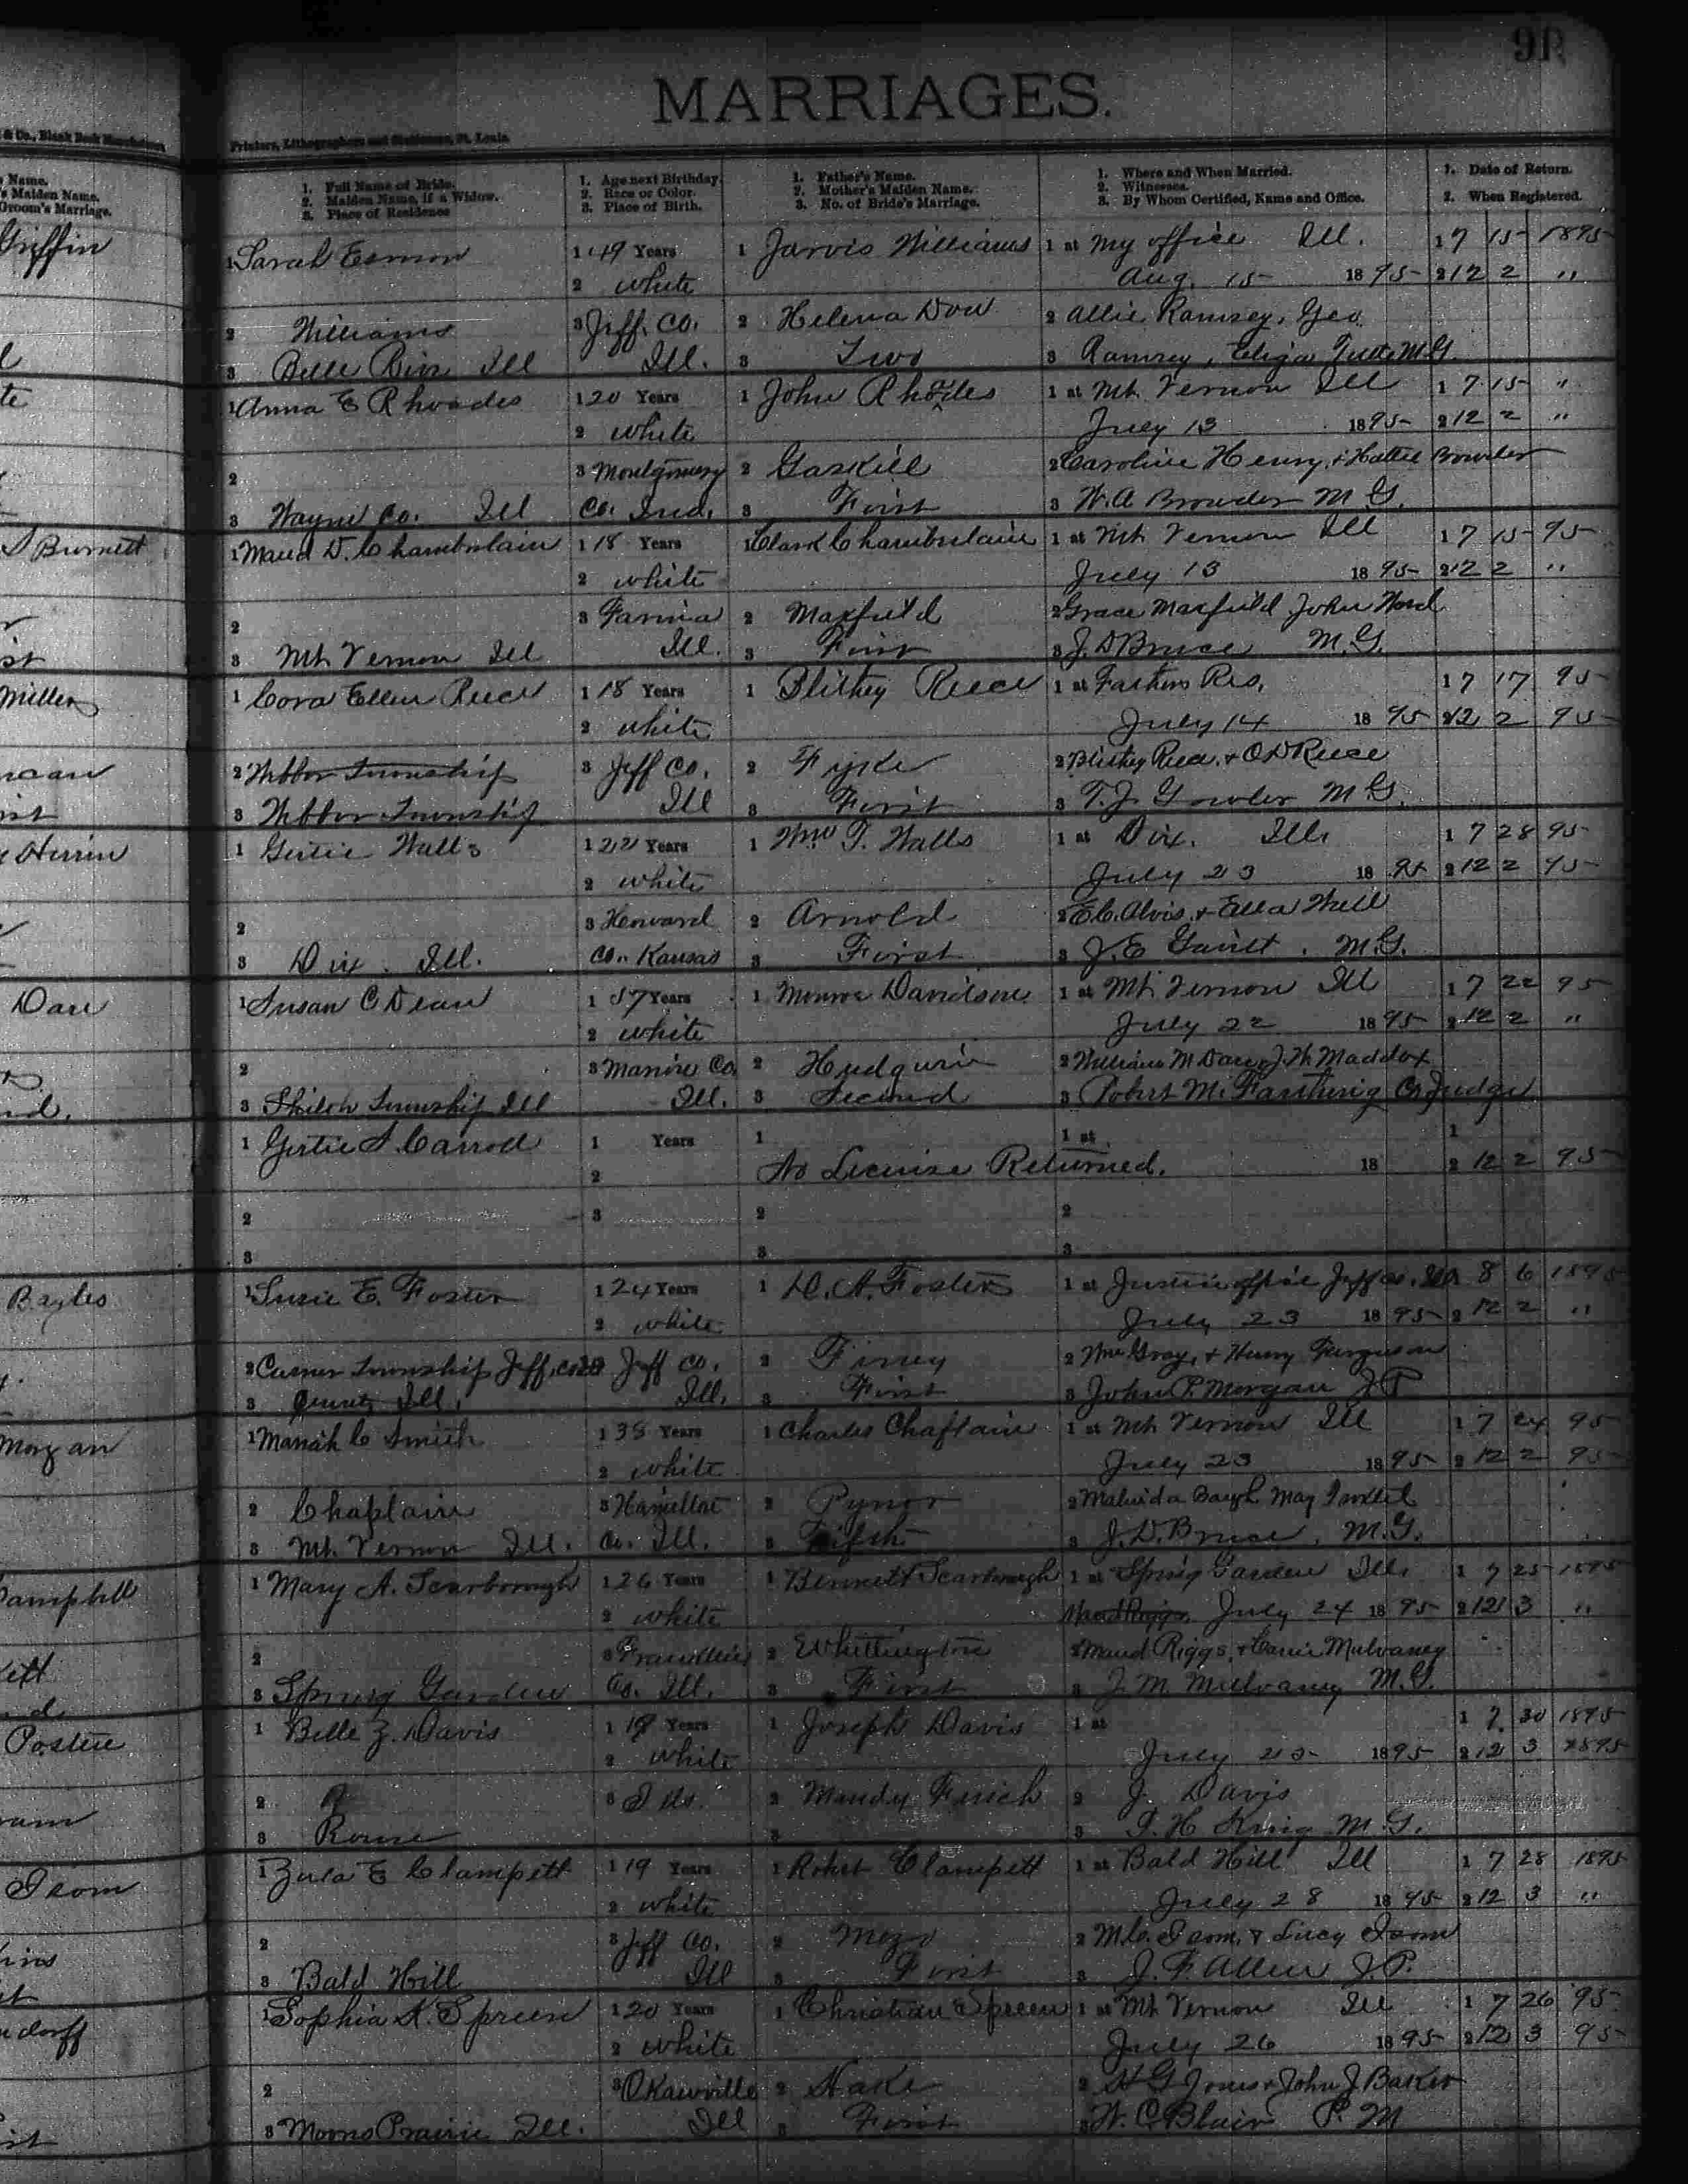 91
MARRIAGES.
& Co., Blank Book Manufacturers
Printers, Lithographers and Stationers, St. Louis.
Name.
's Maiden Name.
Groom's Marriage.
1. Full Name of Bride.
2. Maiden Name, if a Widow.
3. Place of Residence
1. Age next Birthday.
2. Race or Color.
3. Place of Birth.
1. Father's Name.
2. Mother's Maiden Name.
3. No. of Bride's Marriage.
1. Where and When Married.
2. Witnesses.
3. By Whom Certified, Name and Office.
1. Date of Return.
2. When Registered.
Griffin
1 Sarah Esmon 1 49 Years 1 Jarvis Williams 1 at My office Ill. 1 7 15 1895
2 white Aug. 15 1895 2 12 2 "
2 Williams 3 Jeff. Co. 2 Helena Dow 2 Allie Ramsey, Geo
3 Belle Ill Ill. 3 Two 3 Ramsey, M.G.
1 Anna E Rhoades 1 20 Years 1 John Rhodes 1 at Mt. Vernon Ill 1 7 15 "
2 white July 13 1895 2 12 2 "
2 3 Montgomery 2 Gaskill 2 Caroline Henry, & Hattie Browder
3 Wayne Co. Ill Co. Ind. 3 First 3 W. A Browder M G.
S Burnett
1 Maud D. Chamberlain 1 18 Years 1 Clark Chamberlain 1 at Mt Vernon Ill 1 7 15 95
2 white July 13 1895 2 12 2 "
2 3 Farina 2 Maxfield 2 Grace Maxfield John
3 Mt Vernon Ill Ill. 3 First 3 J. D Bruce M.G.
Miller
1 Cora Ellen Reece 1 18 Years 1 Reece 1 at Fathers Res. 1 7 17 95
2 white July 14 1895 2 12 2 95
2 Webber Township 3 Jeff Co. 2 Fyke 2 Reece & O D Reece
3 Webber Township Ill 3 First 3 T. J. M.G.
Herrin
1 Gertie Walls 1 22 Years 1 Wm T. Walls 1 at Dix. Ill. 1 7 28 95
2 white July 23 1895 2 12 2 95
2 3 Howard 2 Arnold 2 E C. Alvis, & Ella
3 Dix. Ill. Co. Kansas 3 First 3 J. E M.G.
Dare
1 Susan C Dean 1 57 Years 1 Monroe Davidson 1 at Mt. Vernon Ill 1 7 22 95
2 white July 22 1895 2 12 2 "
2 3 Marion Co. 2 2 William M Dare, J. W. Maddox
3 Shiloh Township Ill Ill. 3 Second 3 Robert M. Farthing Co Judge
1 Gertie S. Carroll 1 Years 1 1 at 1
2 No License Returned. 18 2 12 2 95
2 3 2 2
3 3 3
Bayles
1 Susie E. Foster 1 24 Years 1 D. A. Foster 1 at Justice office Jeff Co. Ill 1 8 6 1895
2 white July 23 1895 2 12 2 "
2 Casner Township Jeff. Co. 3 Jeff Co. 2 Finey 2 Wm Gray, & Henry Ferguson
3 Ill. Ill. 3 First 3 John P. Morgan J P
Morgan
1 Mariah C Smith 1 38 Years 1 Charles Chaplain 1 at Mt. Vernon Ill 1 7 24 95
2 white July 23 1895 2 12 2 95
2 Chaplain 3 Hamilton 2 2 Malinda Baugh May
3 Mt. Vernon Ill. Co. Ill. 3 Fifth 3 J. D. Bruce, M.G.
Campbell
1 Mary A. Scarborough 1 26 Years 1 Bennett Scarborough 1 at Spring Garden Ill. 1 7 25 1895
2 white Maud Riggs. July 24 1895 2 12 3 "
2 3 Franklin 2 Whittington 2 Maud Riggs, & Carrie Mulvaney
3 Spring Garden Co. Ill. 3 First 3 J. M. Mulvaney M.G.
1 Belle Z. Davis 1 19 Years 1 Joseph Davis 1 at 1 7 30 1895
2 white July 1895 2 12 3 1895
2 3 Ills. 2 Mandy 2 J. Davis
3 3 3 H King M.G.
Isom
1 Zula E Clampett 1 19 Years 1 Robert Clampett 1 at Bald Hill Ill 1 7 28 1895
2 white July 28 1895 2 12 3 "
2 3 Jeff Co. 2 2 M. C. Isom, & Lucy Isom
3 Bald Hill Ill 3 First 3 J. F. Allen J.P.
1 Sophia K. Spreen 1 20 Years 1 Christian Spreen 1 at Mt Vernon Ill 1 7 26 95
2 white July 26 1895 2 12 3 95
2 3 Okawville 2 Hake 2 G Jones & John J Baker
3 Moores Prairie Ill. Ill 3 First 3 W. C. Blair P. M